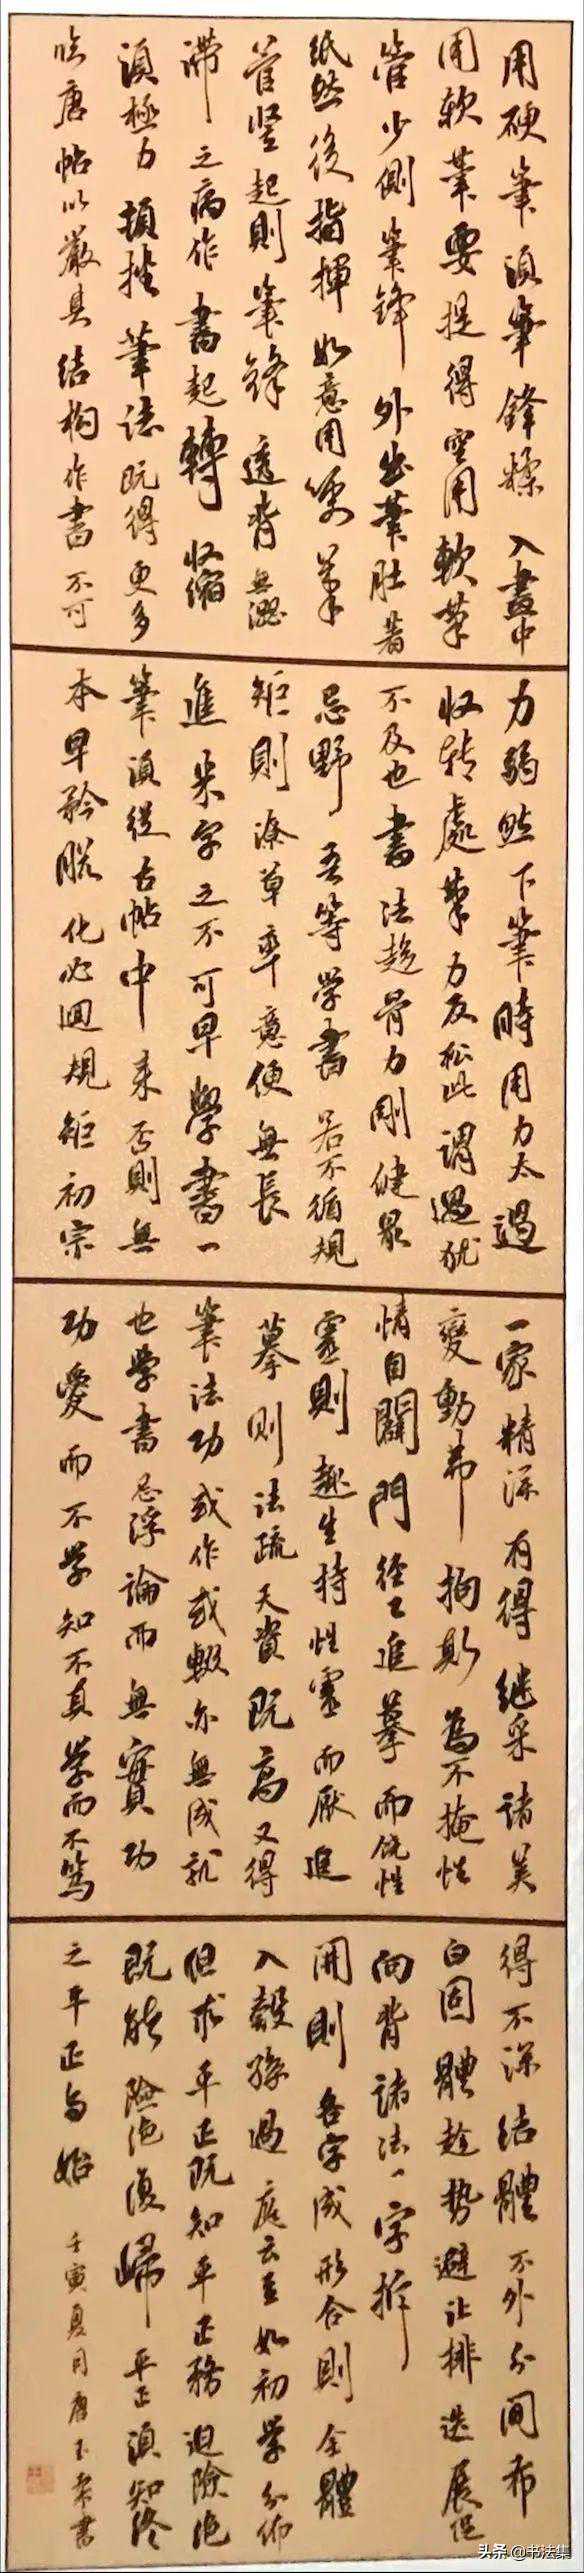 用硬筆須筆鋒揉入畫中
用軟筆要提得空用軟筆
管少側筆鋒外出筆肚著
紙然後指揮如意用硬筆
管豎起則筆鋒透背無澀
滯之病作書起轉收縮
須極力頓挫筆誌既得更多
臨唐帖以嚴其結構作書不可
力弱然下筆時用力太過
收轉處筆力反松此謂過猶
不及也書法趋骨力剛健最
忌野吾等學書若不循規
矩則潦草率意便無長
進朱字之不可早學書一
筆須從古帖中来否則無
本早矜脫化必迴規矩初宗
一家精深有得繼采諸美
變動弗拘斯為不掩性
情自闢門徑工追摹而饶性
靈則趣生持性靈而厭追
摹則法疏天資既高又得
筆法功或作或輟亦無成就
也學書忌浮論而無實功
功愛而不學知不真學而不篤
得不深结體不外分间布
白因體趁势避让排迭展促
向背諸法一字拆
開則各字成形合則全體
入彀孫過庭云至如初學分佈
但求平正既知平正務迫險絕
既能險绝復歸平正須知终
之平正与始
壬寅夏月唐
头条 @书法集